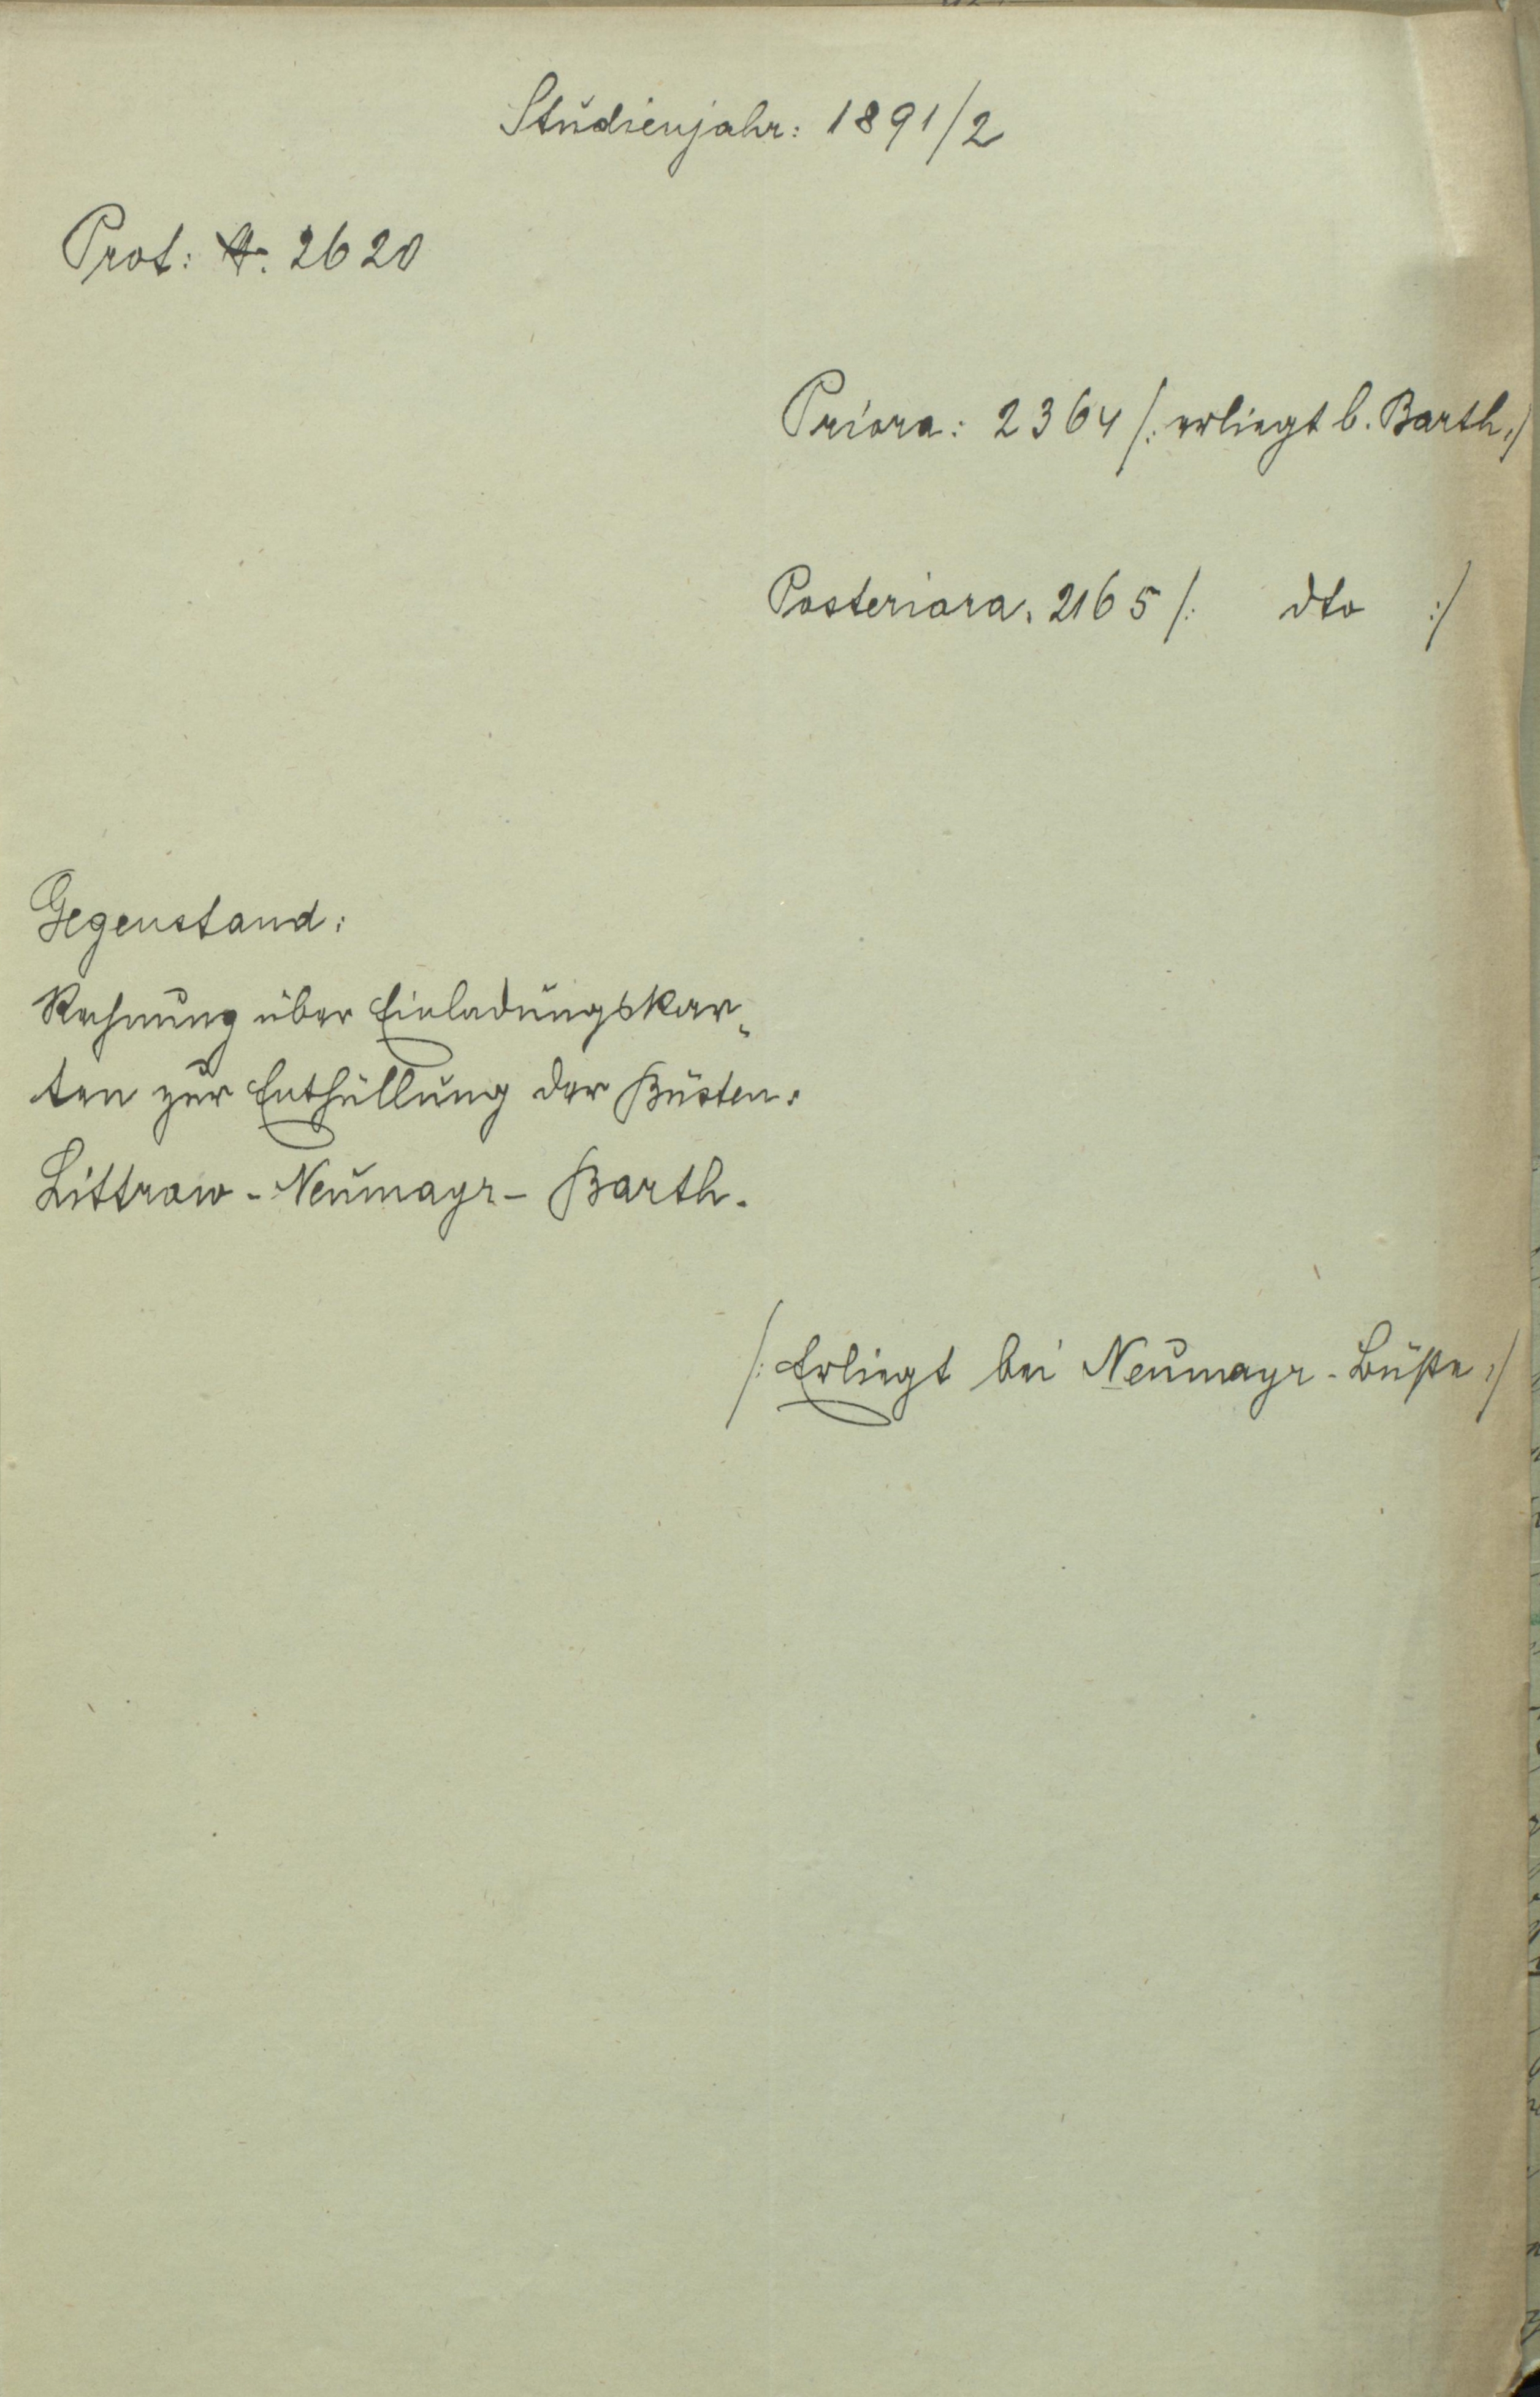 Studienjahr: 1891/2
Prot: N. 2620
Priora: 2364 /: erliegt b. Barth :/
Posteriora. 2165 /: dto :/
Gegenstand:
Rechnung über Einladungskar„
ten zur Enthüllung der Büsten:
Littrow - Neumayr - Barth.
/: Erliegt bei Neumayr - Büste :/